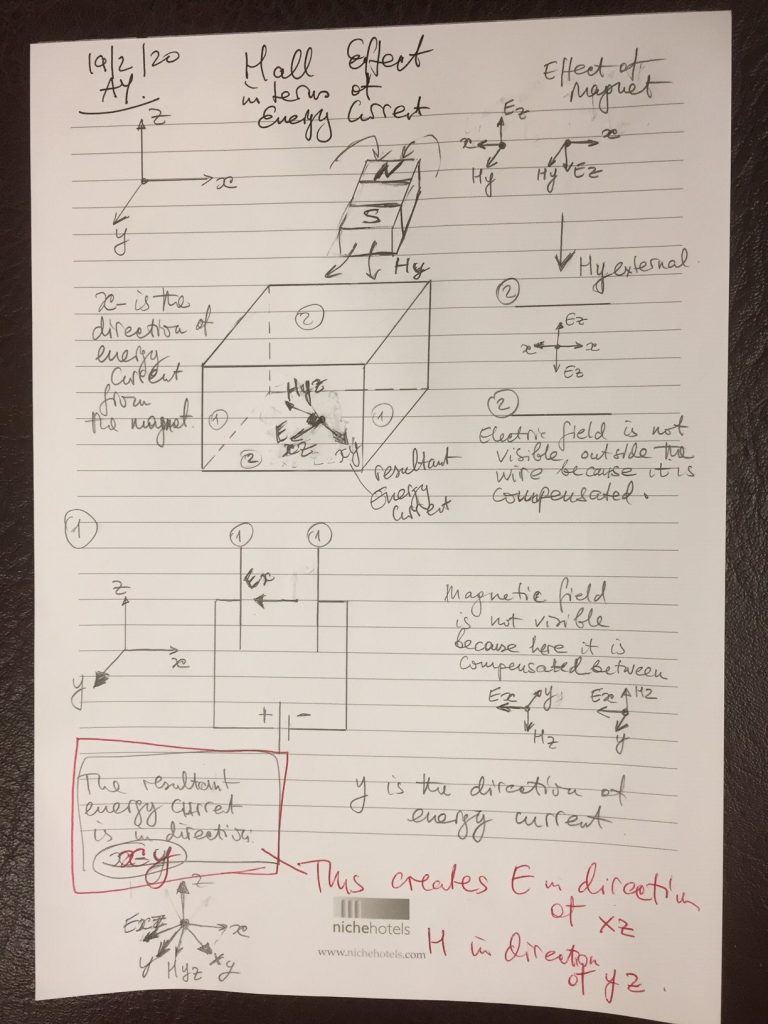 19/2/20
AY.
Hall Effect
in terms of
Energy Current
Effect of
Magnet
z
x
y
Ez
x
Hy
x
Hy
Ez
N
S
Hy
Hy external
x- is the
direction of
energy
Current
from
the magnet
2
1
1
2
Hyz
E
xz
xy
resultant
Energy
Current
2
Ez
x
x
Ez
2
Electric field is not
visible outside the
wire because it is
compensated.
1
1
1
Ex
z
x
y
+
-
Magnetic field
is not visible
because here it is
Compensated between
Ex
y
Hz
Ex
Hz
y
The resultant
energy curret
is in direction
x-y
y is the direction of
energy current
This creates E in direction
of xz
H in direction
of yz.
z
Exz
x
y
Hyz
xy
nichehotels
www.nichehotels.com